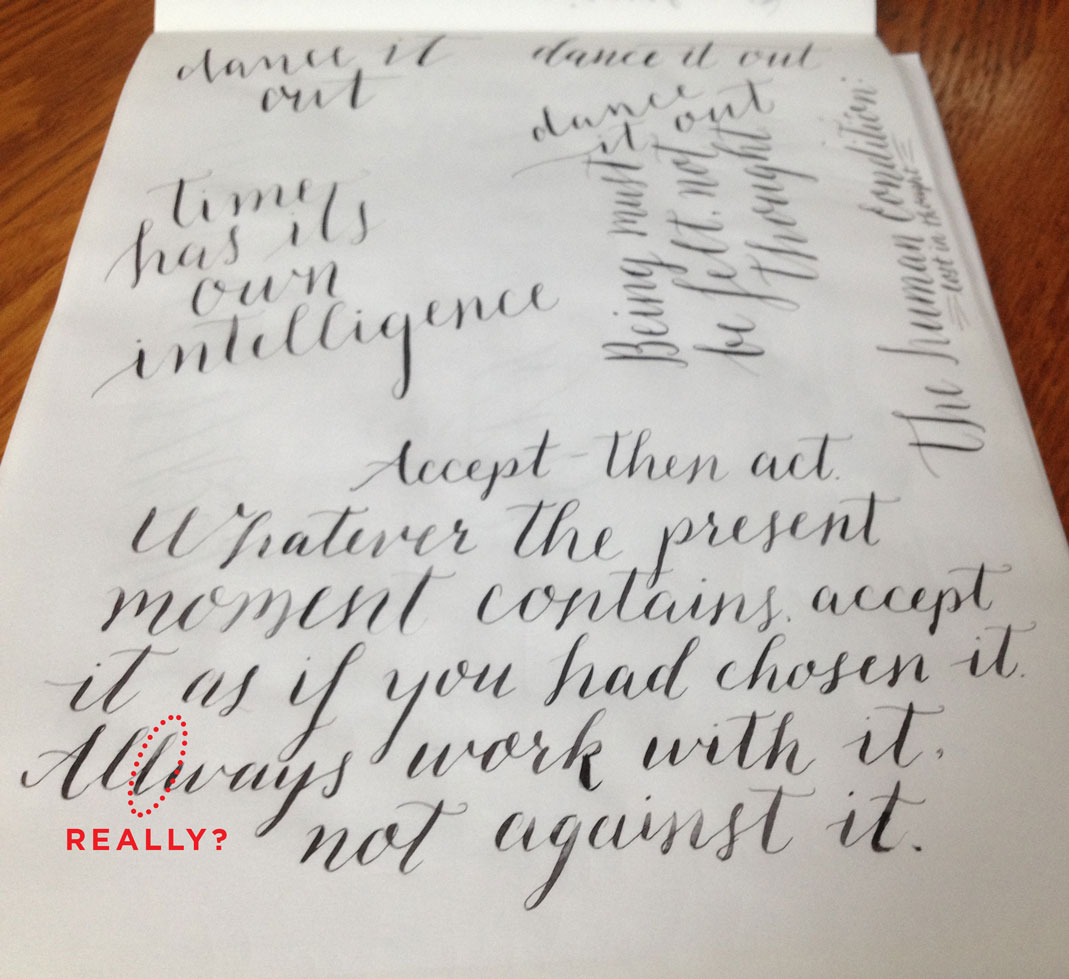 dance it
out
dance it out
dance
it out
time
has its
own
intelligence
Being must
be felt, not
be thought
The human condition:
lost in thought
Accept - then act.
Whatever the present
moment contains, accept
it as if you had chosen it.
Allways work with it,
not against it.
REALLY?